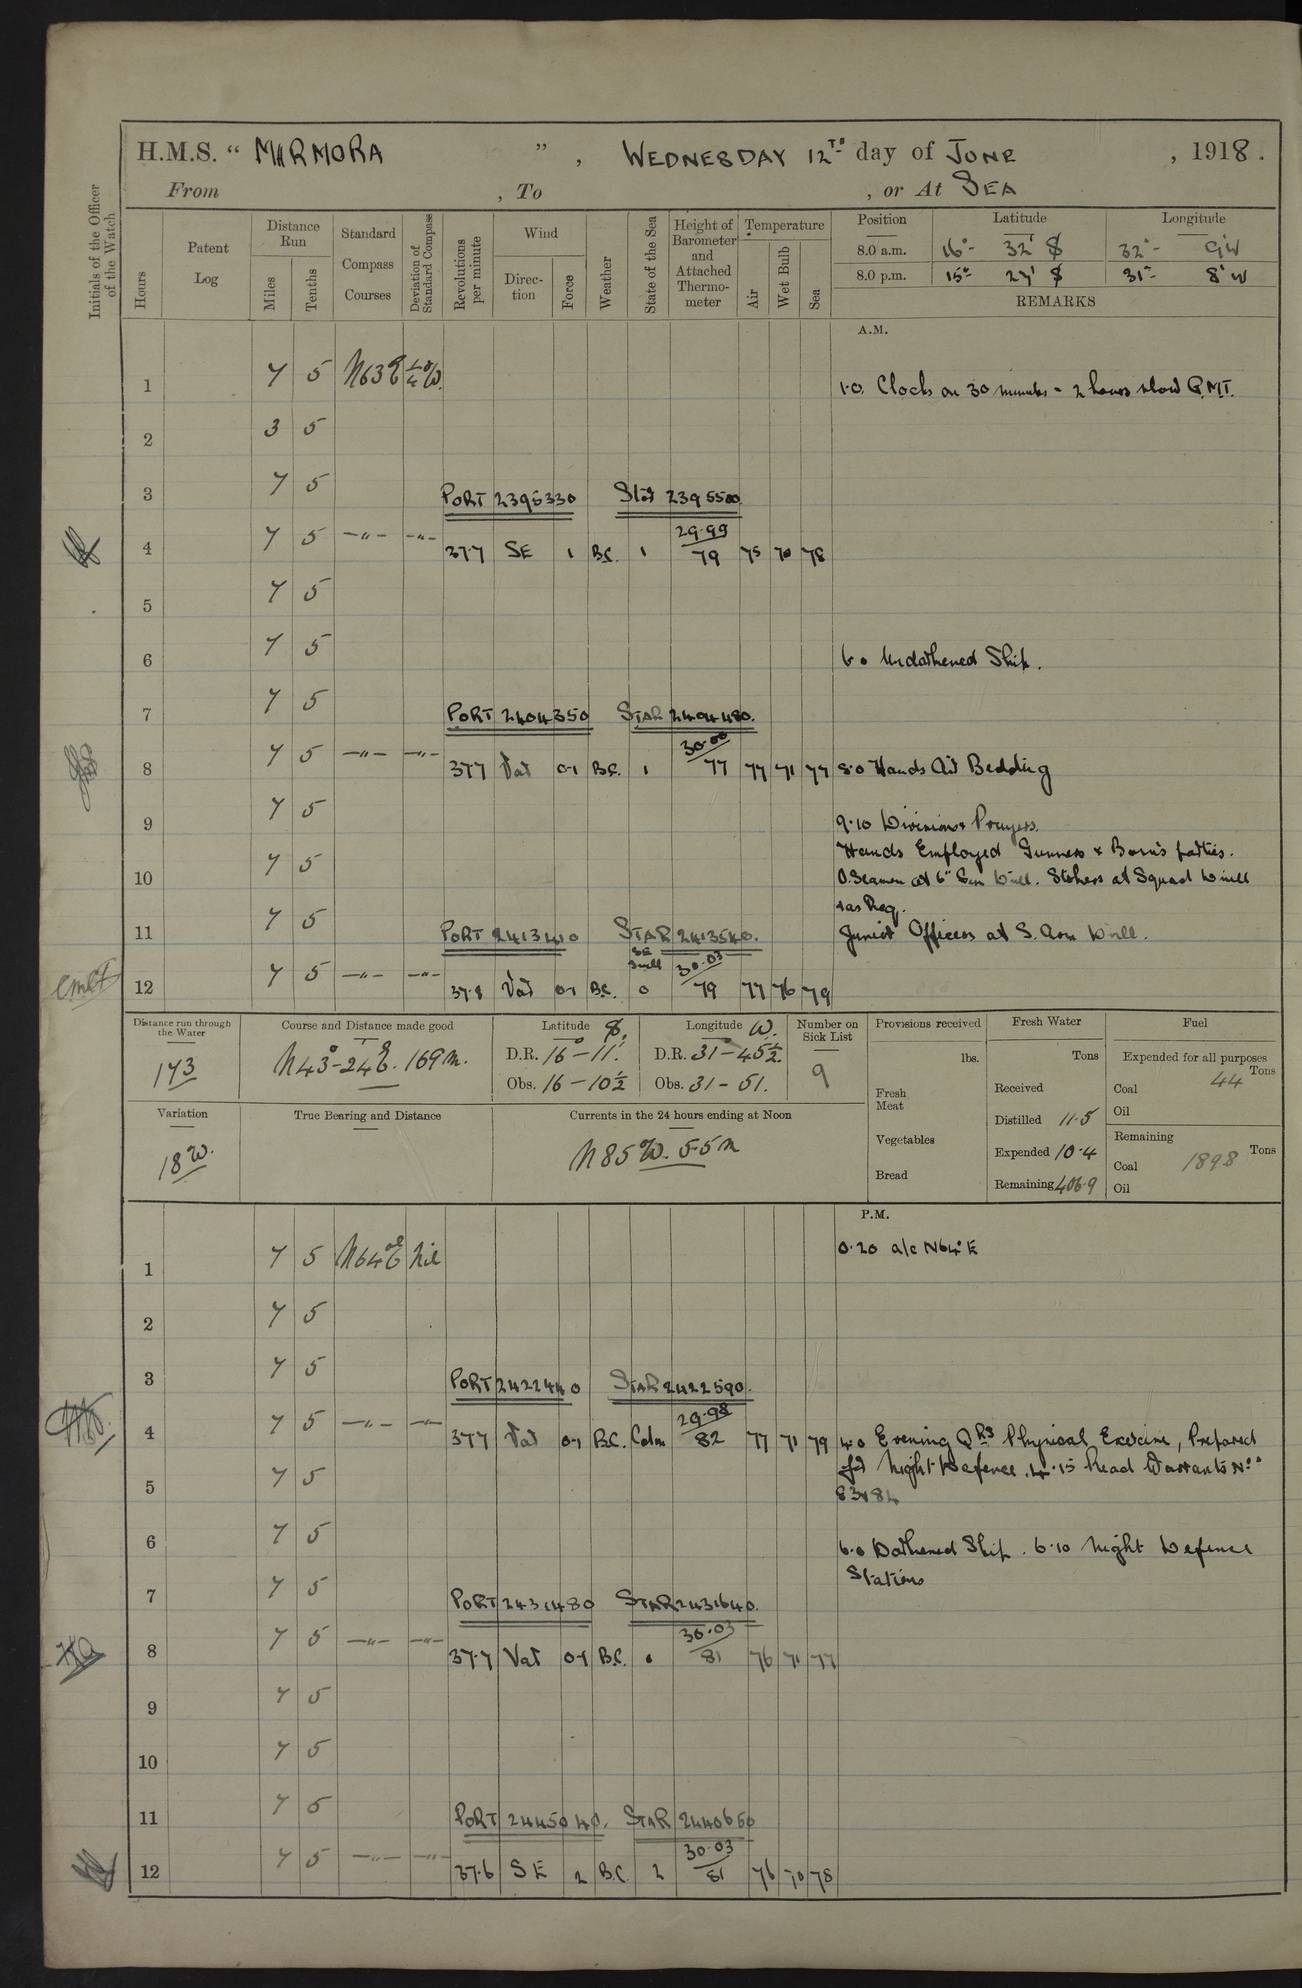 H.M.S. “ MARMORA ” , WEDNESDAY 12TH day of JUNE , 1918.
From , To , or At SEA
Initials of the Officer of the Watch
Hours
Patent Log
Distance Run
Miles
Tenths
Standard Compass Courses
Deviation of Standard Compass
Revolutions per minute
Wind
Direction
Force
Weather
State of the Sea
Height of Barometer and Attached Thermometer
Temperature
Air
Wet Bulb
Sea
Position Latitude Longitude
8.0 a.m. 16°- 32' S 32°- 9' W
8.0 p.m. 15°- 27' S 31°- 8' W
REMARKS
A.M.
1 7 5 N63E ½°W.
1.0. Clocks on 30 minutes = 2 hours slow G.M.T.
2 3 5
3 7 5 PORT 2395330 Star 2395500
4 7 5 —"— —"— 37.7 SE 1 B.C. 1 29.99 79 75 70 78
5 7 5
6 7 5 6.0 Undarkened Ship.
7 7 5 PORT 2404350 STAR 2404480.
8 7 5 —"— —"— 37.7 Var 0-1 B.C. 1 30.00 77 77 71 77 8.0 Hands Air Bedding
9 7 5 9.10 Divisions & Prayers.
Hands Employed Gunners & Bosn's parties.
10 7 5 O.Seamen at 6" Gun Drill. Stokers at Squad Drill
& as Req.
11 7 5 PORT 2413410 STAR 2413540. Junior Officers at S. Arm Drill.
12 7 5 —"— —"— 37.8 Var 0-1 B.C. SE Swell 0 30.03 79 77 76 79
Distance run through the Water
173
Course and Distance made good
N43°-24E. 169m.
Latitude S.
D.R. 16 - 11'.
Obs. 16 - 10½
Longitude W.
D.R. 31 - 45½.
Obs. 31 - 51.
Number on Sick List
9
Provisions received
lbs.
Fresh Meat
Vegetables
Bread
Fresh Water
Tons
Received
Distilled 11.5
Expended 10.4
Remaining 406.9
Fuel
Expended for all purposes
Tons
Coal 44
Oil
Remaining
Tons
Coal 1898
Oil
Variation
18W.
True Bearing and Distance
Currents in the 24 hours ending at Noon
N85W. 5.5m
P.M.
1 7 5 N64E Nil 0.20 a/c N64°E
2 7 5
3 7 5 PORT 2422440 STAR 2422590.
4 7 5 —"— —"— 37.7 Var 0-1 B.C. Calm 29.98 82 77 71 79 4.0 Evening Qrs Physical Exercise, Prepared
for Night Defence. 4.15 Read Warrants Nos
5 7 5 83 & 84
6 7 5 6.0 Darkened Ship. 6.10 Night Defence
Stations
7 7 5 PORT 2431480 STAR 2431640.
8 7 5 —"— —"— 37.7 Var 0-1 B.C. 30.03 81 76 71 77
9 7 5
10 7 5
11 7 5 PORT 2445040. STAR 2440660
12 7 5 —"— —"— 37.6 SE 2 B.C. 2 30.03 81 76 70 78